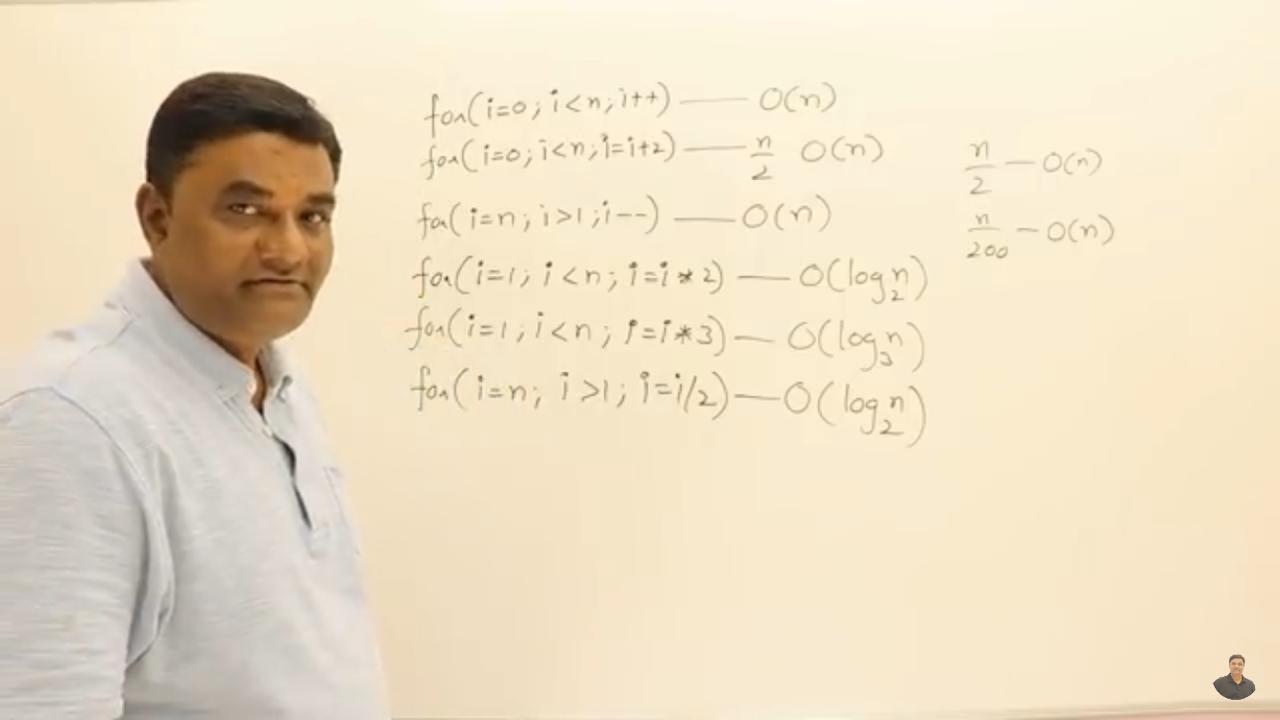 for(i=0; i<n; i++) —— O(n)
for(i=0; i<n; i=i+2) —— n/2 O(n)
for(i=n; i>1; i--) —— O(n)
for(i=1; i<n; i=i*2) —— O(log₂n)
for(i=1; i<n; i=i*3) — O(log₃n)
for(i=n; i>1; i=i/2) — O(log₂n)
n/2 — O(n)
n/200 — O(n)